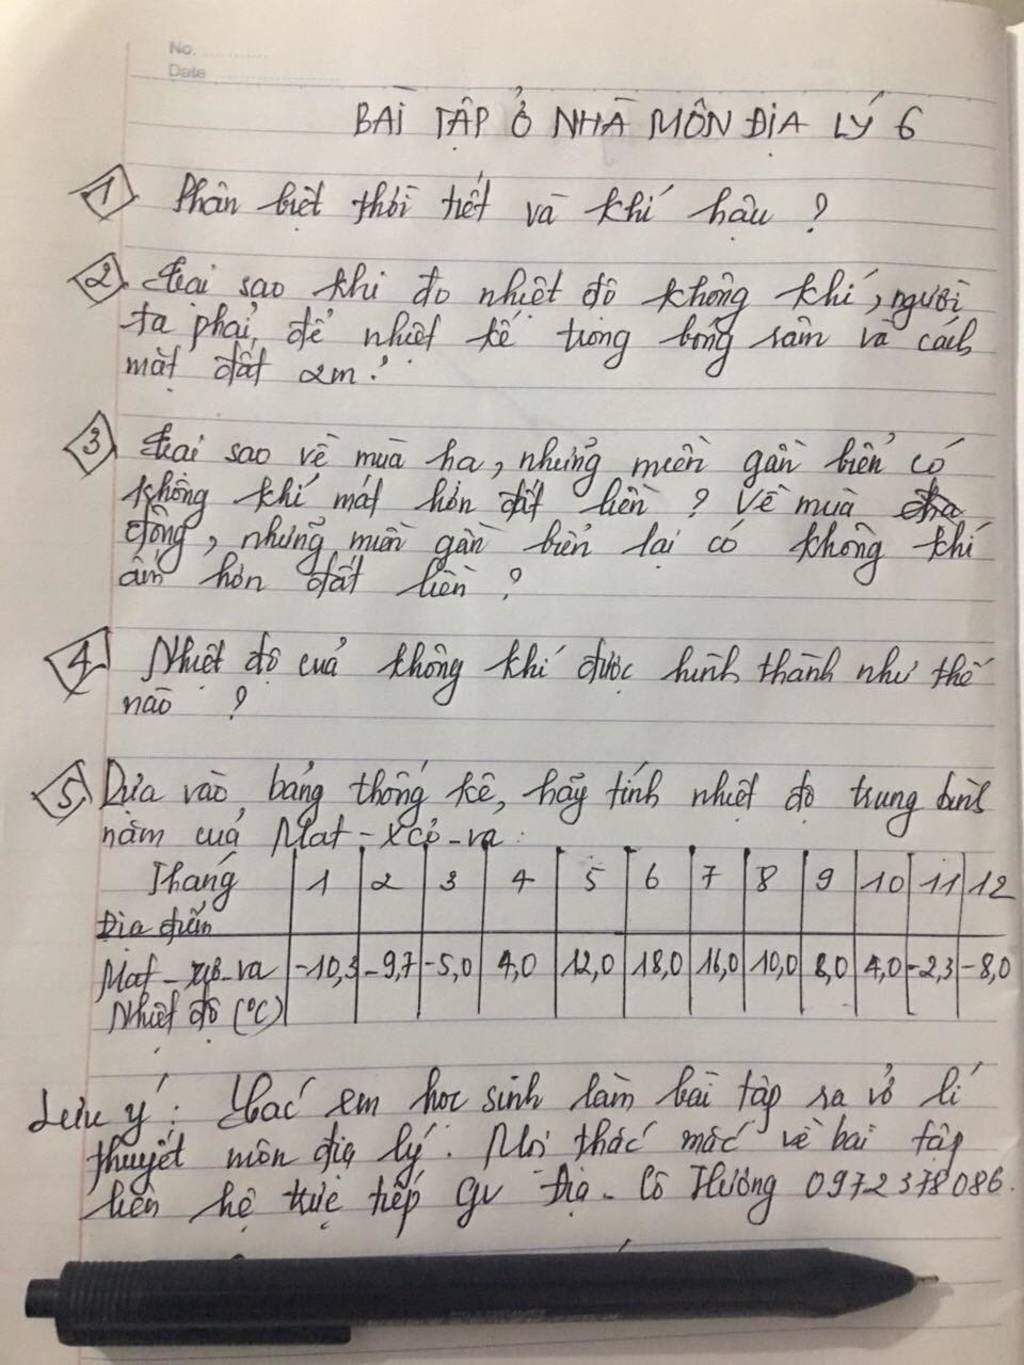 No.
Date
BÀI TẬP Ở NHÀ MÔN ĐỊA LÝ 6
1 Phân biệt thời tiết và khí hậu ?
2. Tại sao khi đo nhiệt độ không khí, người
ta phải để nhiệt kế trong bóng râm và cách
mặt đất 2m ?
3 Tại sao về mùa hạ, những miền gần biển có
không khí mát hơn đất liền ? Về mùa
đông, những miền gần biển lại có không khí
ấm hơn đất liền ?
4. Nhiệt độ của không khí được hình thành như thế
nào ?
5. Dựa vào bảng thống kê, hãy tính nhiệt độ trung bình
năm của Mat-xcơ-va :
Tháng 1 2 3 4 5 6 7 8 9 10 11 12
Địa điểm
Mat-xcơ-va -10,3 -9,7 -5,0 4,0 12,0 18,0 16,0 10,0 8,0 4,0 -2,3 -8,0
Nhiệt độ (°C)
Lưu ý : Các em học sinh làm bài tập ra vở lí
thuyết môn địa lý. Mọi thắc mắc về bài tập
liên hệ trực tiếp GV Địa - Cô Hường 0972378086.